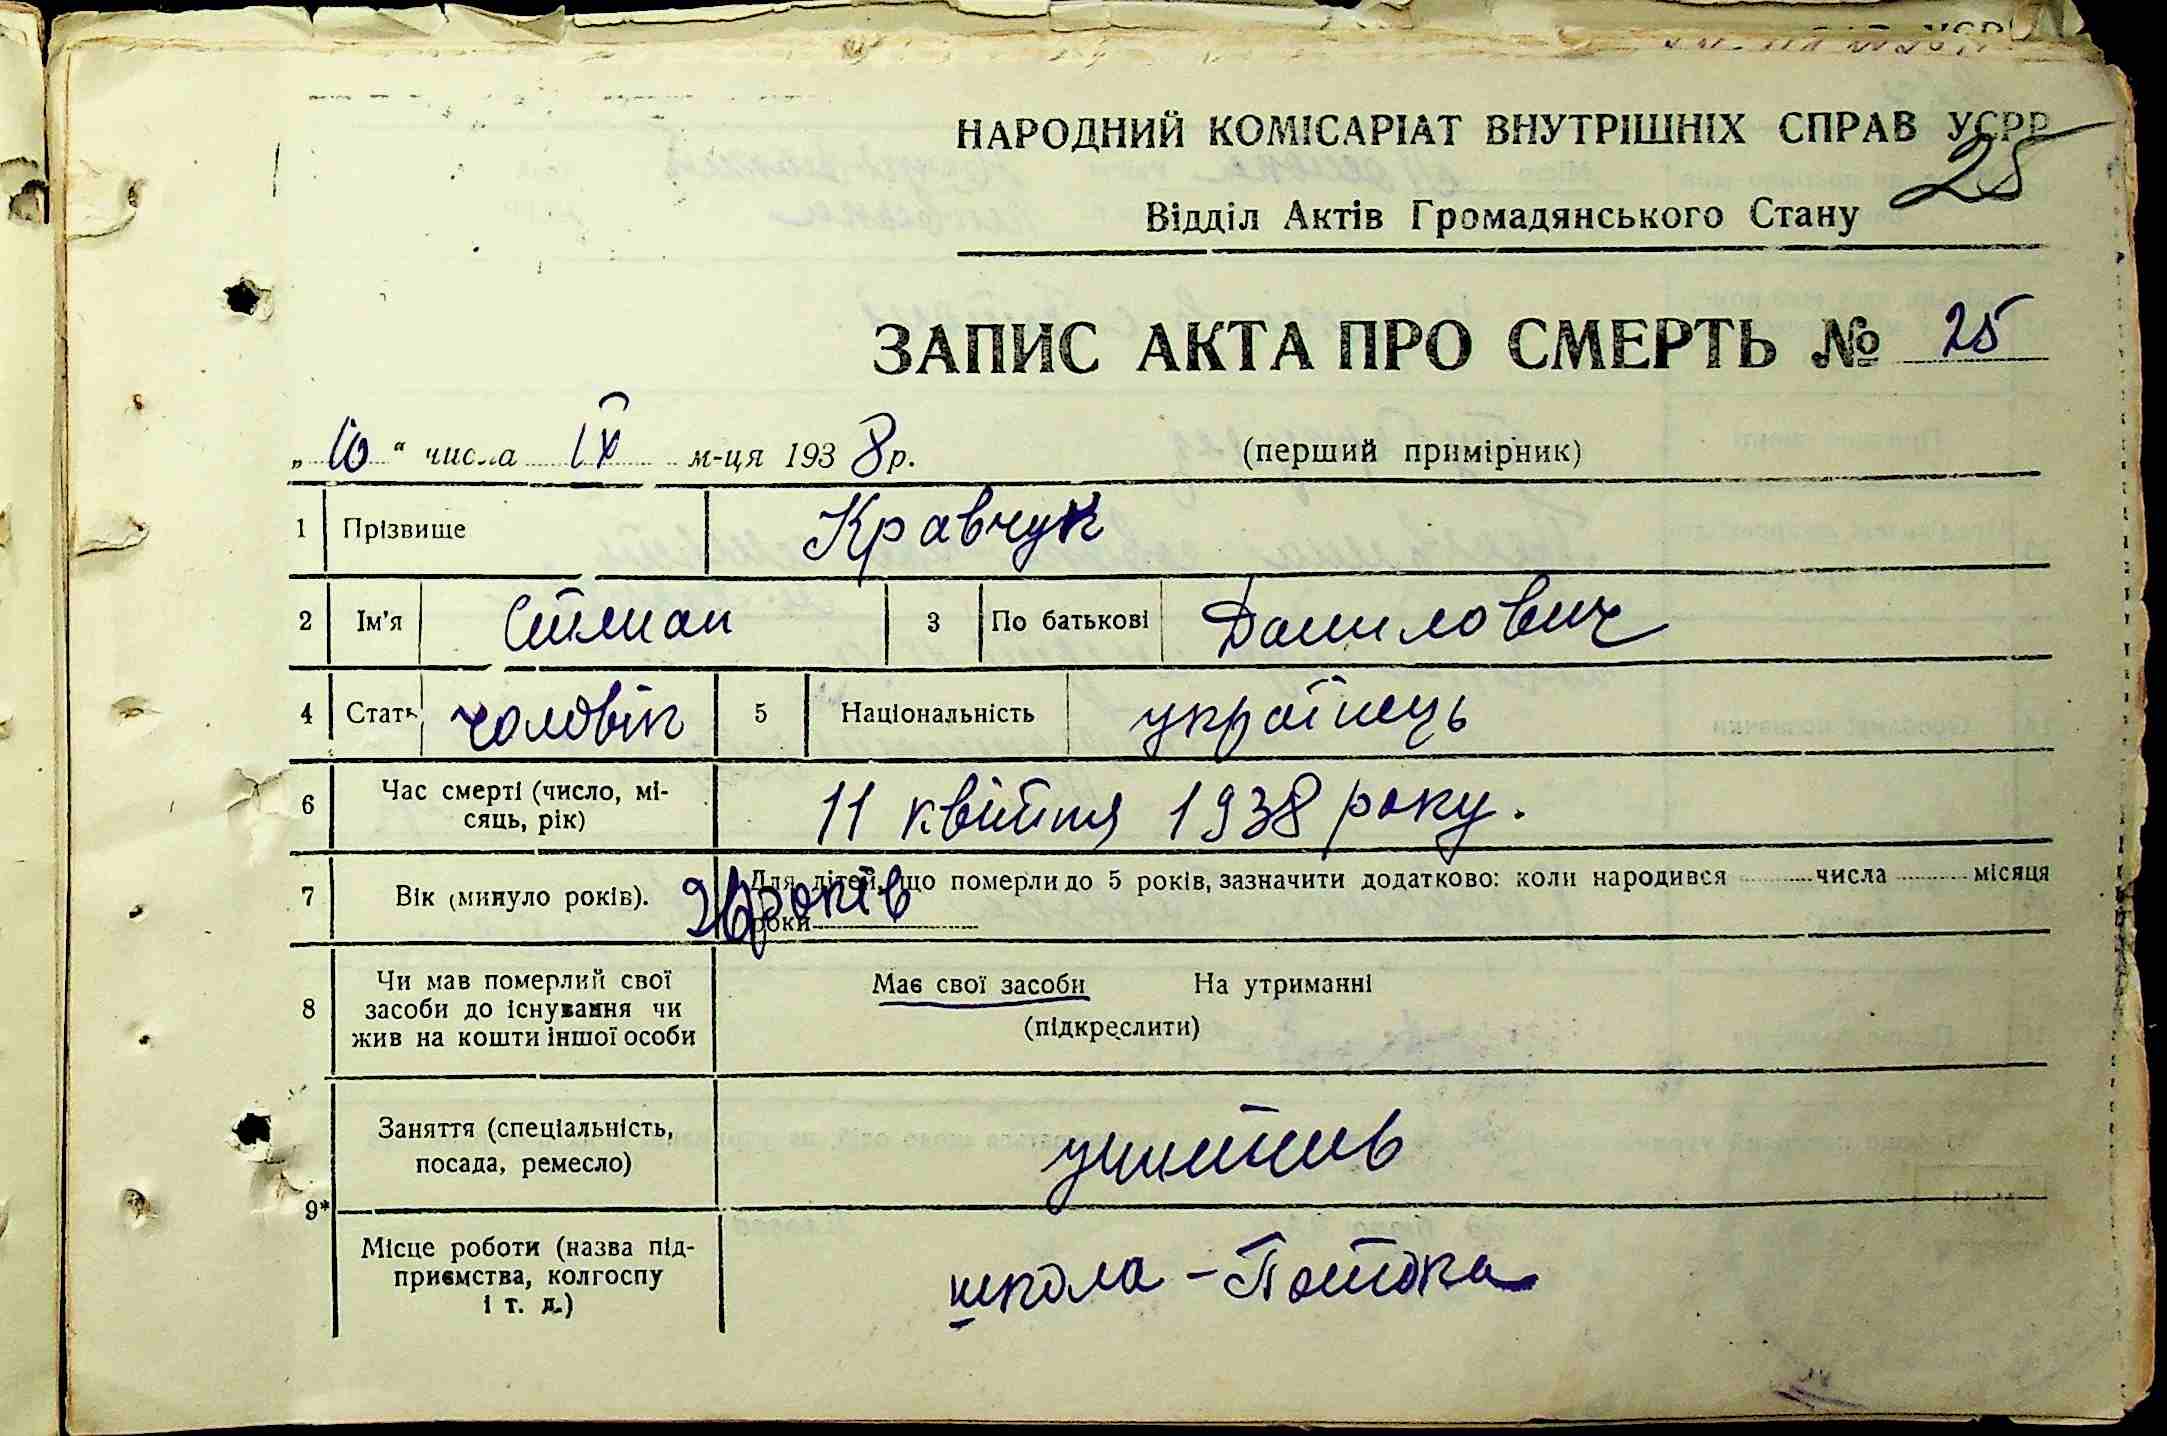 НАРОДНИЙ КОМІСАРІАТ ВНУТРІШНІХ СПРАВ УСРР
25
Відділ Актів Громадянського Стану
ЗАПИС АКТА ПРО СМЕРТЬ № 25
„10“ числа IV м-ця 1938 р. (перший примірник)
1 Прізвище Кравчук
2 Ім'я Степан 3 По батькові Данилович
4 Стать чоловік 5 Національність українець
6 Час смерті (число, мі-
сяць, рік) 11 квітня 1938 року.
7 Вік (минуло років). 26 років Для дітей, що померли до 5 років, зазначити додатково: коли народився числа місяця
роки
8 Чи мав померлий свої
засоби до існування чи
жив на кошти іншої особи
Має свої засоби На утриманні
(підкреслити)
9* Заняття (спеціальність,
посада, ремесло)
Місце роботи (назва під-
приємства, колгоспу
і т. д.)
школа -